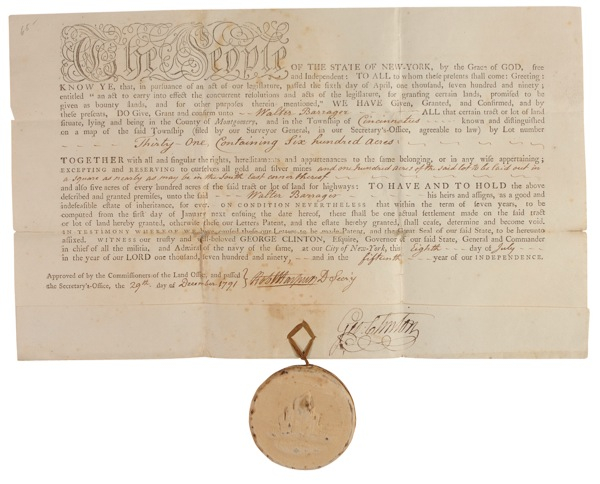 65
The People OF THE STATE OF NEW-YORK, by the Grace of GOD, free
and Independent: TO ALL to whom these presents shall come: Greeting:
KNOW YE, that, in pursuance of an act of our legislature, passed the sixth day of April, one thousand, seven hundred and ninety;
entitled "an act to carry into effect the concurrent resolutions and acts of the legislature, for granting certain lands, promised to be
given as bounty lands, and for other purposes therein mentioned," WE HAVE Given, Granted, and Confirmed, and by
these presents, DO Give, Grant and confirm unto Walter Barrager ALL that certain tract or lot of land
situate, lying and being in the County of Montgomery, and in the Township of Cincinnatus known and distinguished
on a map of the said Township (filed by our Surveyor General, in our Secretary's-Office, agreable to law) by Lot number
Thirty-One, Containing Six hundred Acres
TOGETHER with all and singular the rights, hereditaments and appurtenances to the same belonging, or in any wise appertaining;
EXCEPTING and RESERVING to ourselves all gold and silver mines and one hundred acres of the said lot to be laid out in
a square as nearly as may be in the South East corner thereof
and also five acres of every hundred acres of the said tract or lot of land for highways: TO HAVE AND TO HOLD the above
described and granted premises, unto the said Walter Barrager his heirs and assigns, as a good and
indefeasible estate of inheritance, for ever. ON CONDITION NEVERTHELESS that within the term of seven years, to be
computed from the first day of January next ensuing the date hereof, there shall be one actual settlement made on the said tract
or lot of land hereby granted, otherwise these our Letters Patent, and the estate hereby granted, shall cease, determine and become void.
IN TESTIMONY WHEREOF we have caused these our Letters to be made Patent, and the great Seal of our said State, to be hereunto
affixed. WITNESS our trusty and well-beloved GEORGE CLINTON, Esquire, Governor of our said State, General and Commander
in chief of all the militia, and Admiral of the navy of the same, at our City of New-York, this Eighth day of July
in the year of our LORD one thousand, seven hundred and ninety and in the fifteenth year of our INDEPENDENCE.
Approved of by the Commissioners of the Land Office, and passed
the Secretary's-Office, the 29th day of December 1791
Robt Harpur D Secry
Geo Clinton